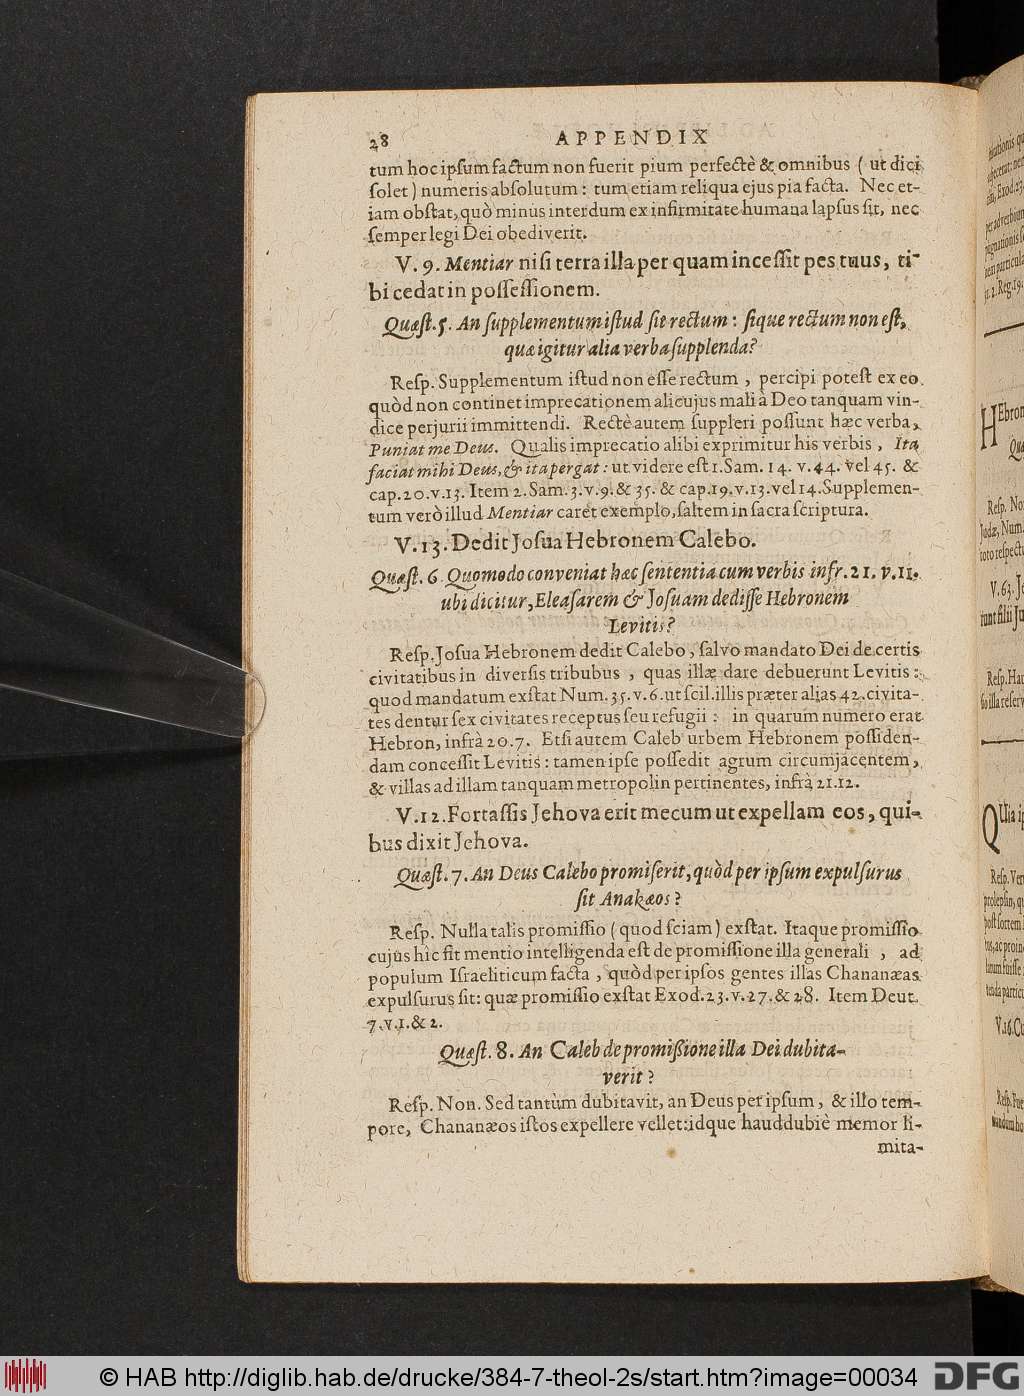 28 APPENDIX
tum hoc ipsum factum non fuerit pium perfectè & omnibus ( ut dici
solet ) numeris absolutum : tum etiam reliqua ejus pia facta. Nec et-
iam obstat, quò minus interdum ex infirmitate humana lapsus sit, nec
semper legi Dei obediverit.
V. 9. Mentiar nisi terra illa per quam incessit pes tuus, ti-
bi cedat in possessionem.
Quæst. 5. An supplementum istud sit rectum : sique rectum non est,
quæ igitur alia verba supplenda?
Resp. Supplementum istud non esse rectum , percipi potest ex eo
quòd non continet imprecationem alicujus mali à Deo tanquam vin-
dice perjurii immittendi. Rectè autem suppleri possunt hæc verba,
Puniat me Deus. Qualis imprecatio alibi exprimitur his verbis , Ita
faciat mihi Deus, & ita pergat : ut videre est 1. Sam. 14. v. 44. vel 45. &
cap. 20. v. 13. Item 2. Sam. 3. v. 9. & 35. & cap. 19. v. 13. vel 14. Supplemen-
tum verò illud Mentiar caret exemplo, saltem in sacra scriptura.
V. 13. Dedit Josua Hebronem Calebo.
Quæst. 6 Quomodo conveniat hæc sententia cum verbis infr. 21. v. 11.
ubi dicitur, Eleasarem & Josuam dedisse Hebronem
Levitis?
Resp. Josua Hebronem dedit Calebo, salvo mandato Dei de certis
civitatibus in diversis tribubus , quas illæ dare debuerunt Levitis :
quod mandatum exstat Num. 35. v. 6. ut scil. illis præter alias 42. civita-
tes dentur sex civitates receptus seu refugii : in quarum numero erat
Hebron, infrà 20. 7. Etsi autem Caleb urbem Hebronem possiden-
dam concessit Levitis : tamen ipse possedit agrum circumjacentem,
& villas ad illam tanquam metropolin pertinentes, infrà 21. 12.
V. 12. Fortassis Jehova erit mecum ut expellam eos, qui-
bus dixit Jehova.
Quæst. 7. An Deus Calebo promiserit, quòd per ipsum expulsurus
sit Anakæos ?
Resp. Nulla talis promissio ( quod sciam ) exstat. Itaque promissio
cujus hîc fit mentio intelligenda est de promissione illa generali , ad
populum Israeliticum facta , quòd per ipsos gentes illas Chananæas
expulsurus sit: quæ promissio exstat Exod. 23. v. 27. & 28. Item Deut.
7. v. 1. & 2.
Quæst. 8. An Caleb de promißione illa Dei dubita-
verit ?
Resp. Non. Sed tantùm dubitavit, an Deus per ipsum, & illo tem-
pore, Chananæos istos expellere vellet: idque hauddubiè memor li-
mita-
© HAB http://diglib.hab.de/drucke/384-7-theol-2s/start.htm?image=00034
DFG